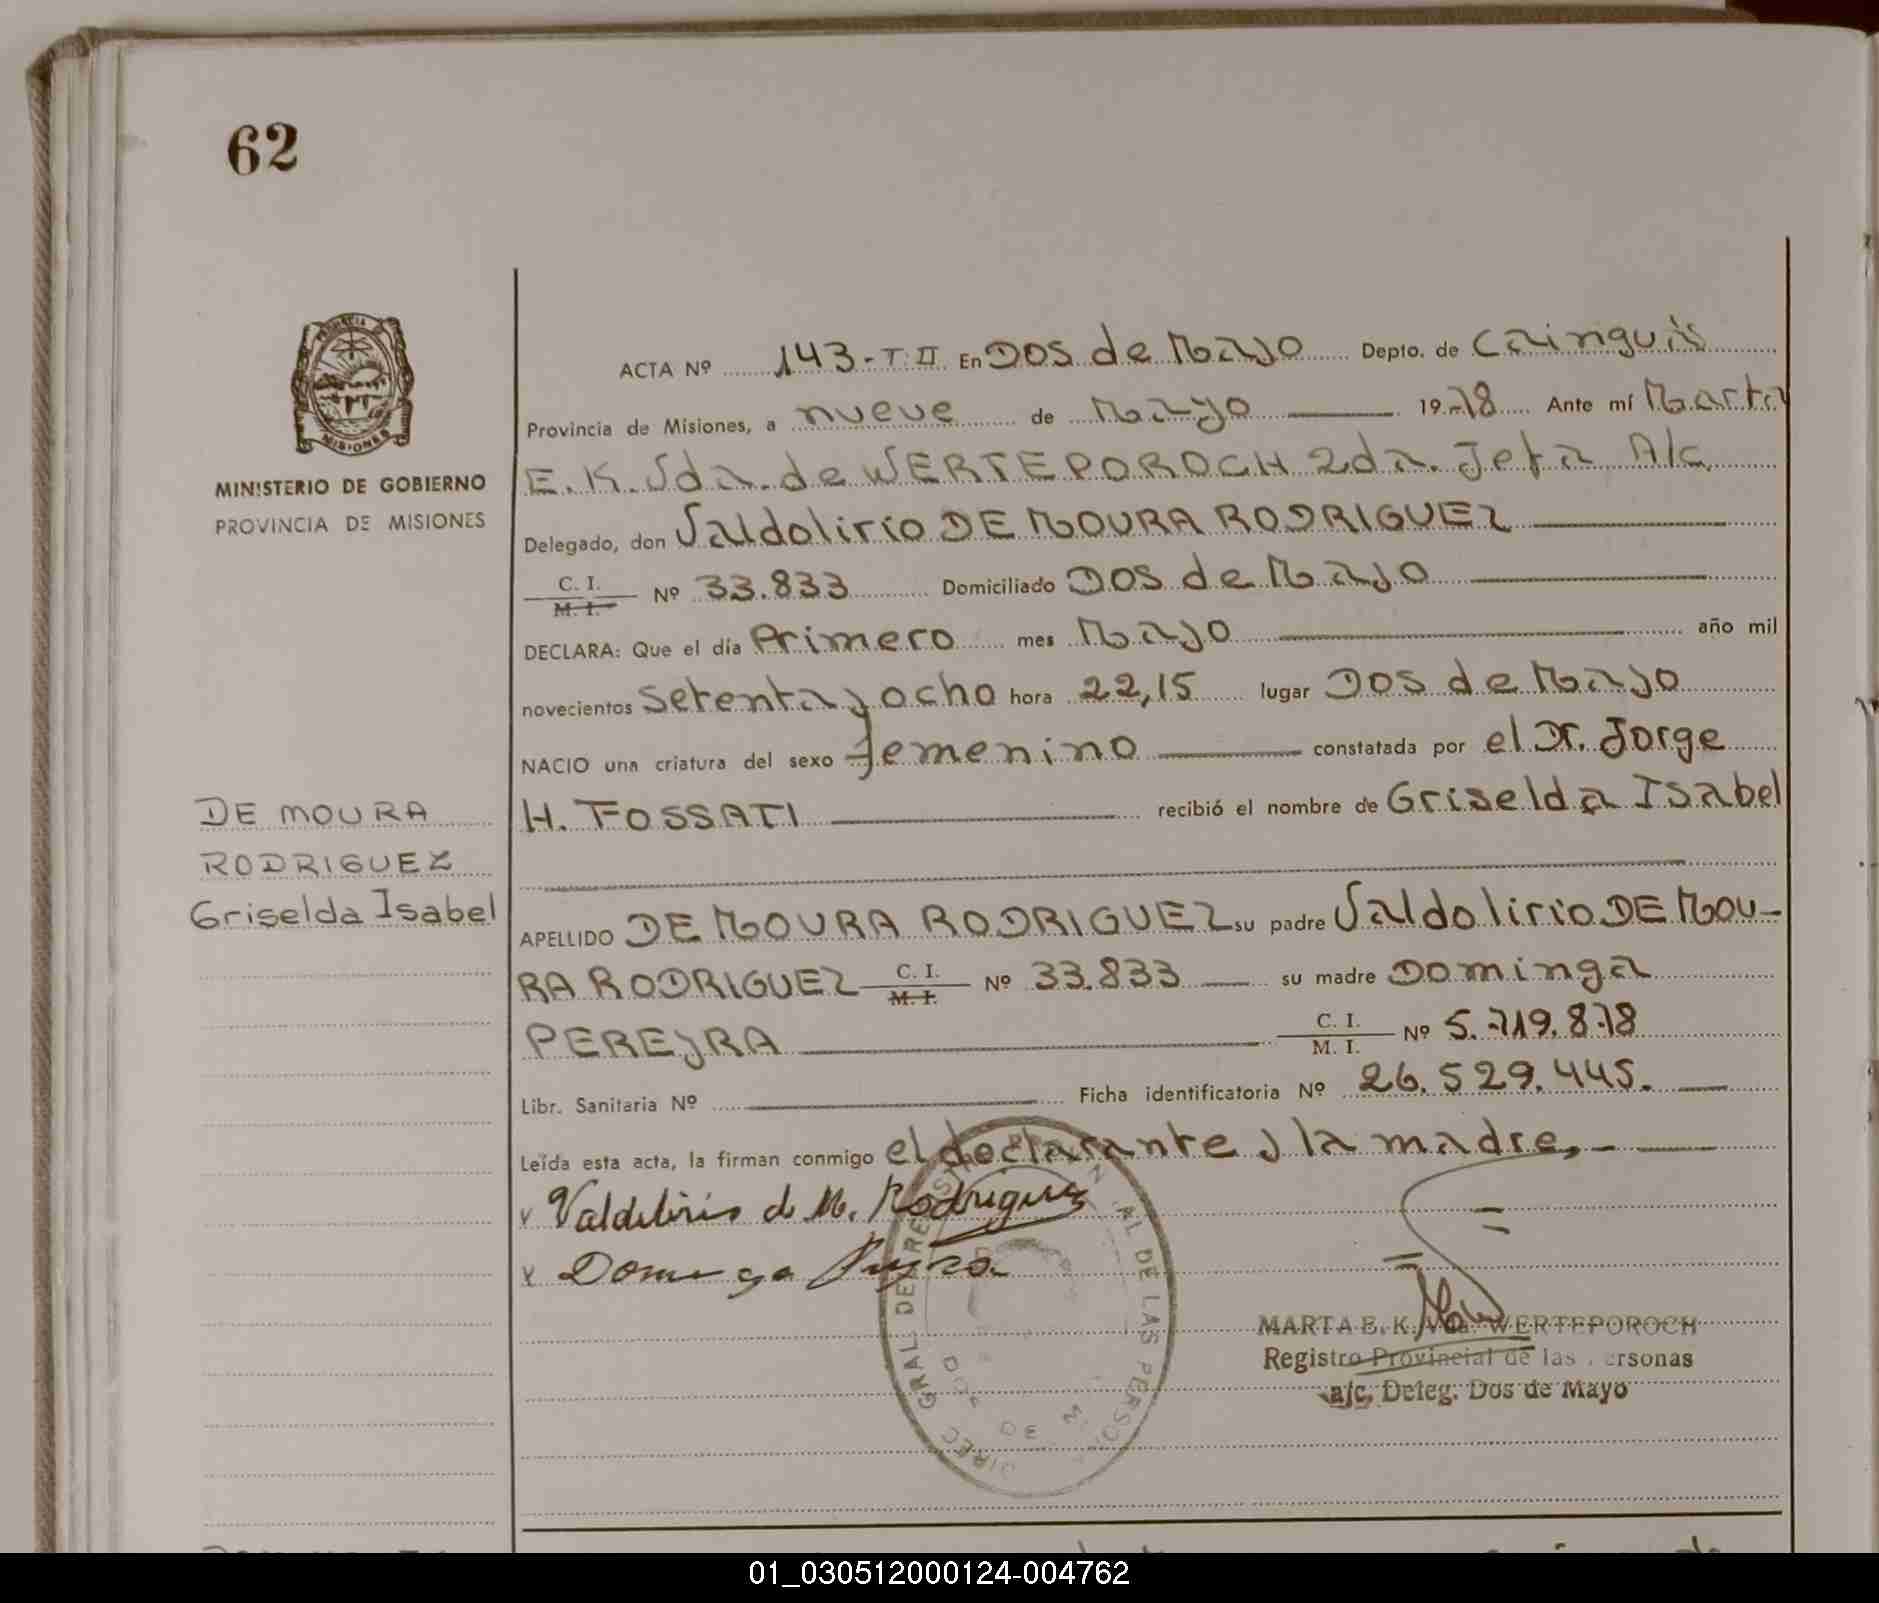 62
PROVINCIA
MISIONES
MINISTERIO DE GOBIERNO
PROVINCIA DE MISIONES
ACTA Nº 143-T.II En Dos de Mayo Depto. de Cainguás
Provincia de Misiones, a nueve de Mayo 1978 Ante mí Marta
E. K. Vda. de WERTEPOROCH 2da. Jefa A/c
Delegado, don Valdolirio DE MOURA RODRIGUEZ
C. I.
M. I. Nº 33.833 Domiciliado Dos de Mayo
DECLARA: Que el día Primero mes Mayo año mil
novecientos setenta y ocho hora 22,15 lugar Dos de Mayo
NACIO una criatura del sexo femenino constatada por el Dr. Jorge
H. FOSSATI recibió el nombre de Griselda Isabel
APELLIDO DE MOURA RODRIGUEZ su padre Valdolirio DE MOU-
RA RODRIGUEZ C. I. M. I. Nº 33.833 su madre Dominga
PEREYRA C. I. M. I. Nº 5.719.878
Libr. Sanitaria Nº Ficha identificatoria Nº 26.529.445.
Leída esta acta, la firman conmigo el declarante y la madre,-
DE MOURA
RODRIGUEZ
Griselda Isabel
Valdolirio de M. Rodriguez
Dominga Pereyra
MARTA E. K. Vda. WERTEPOROCH
Registro Provincial de las ersonas
a/c. Deleg. Dos de Mayo
01_030512000124-004762